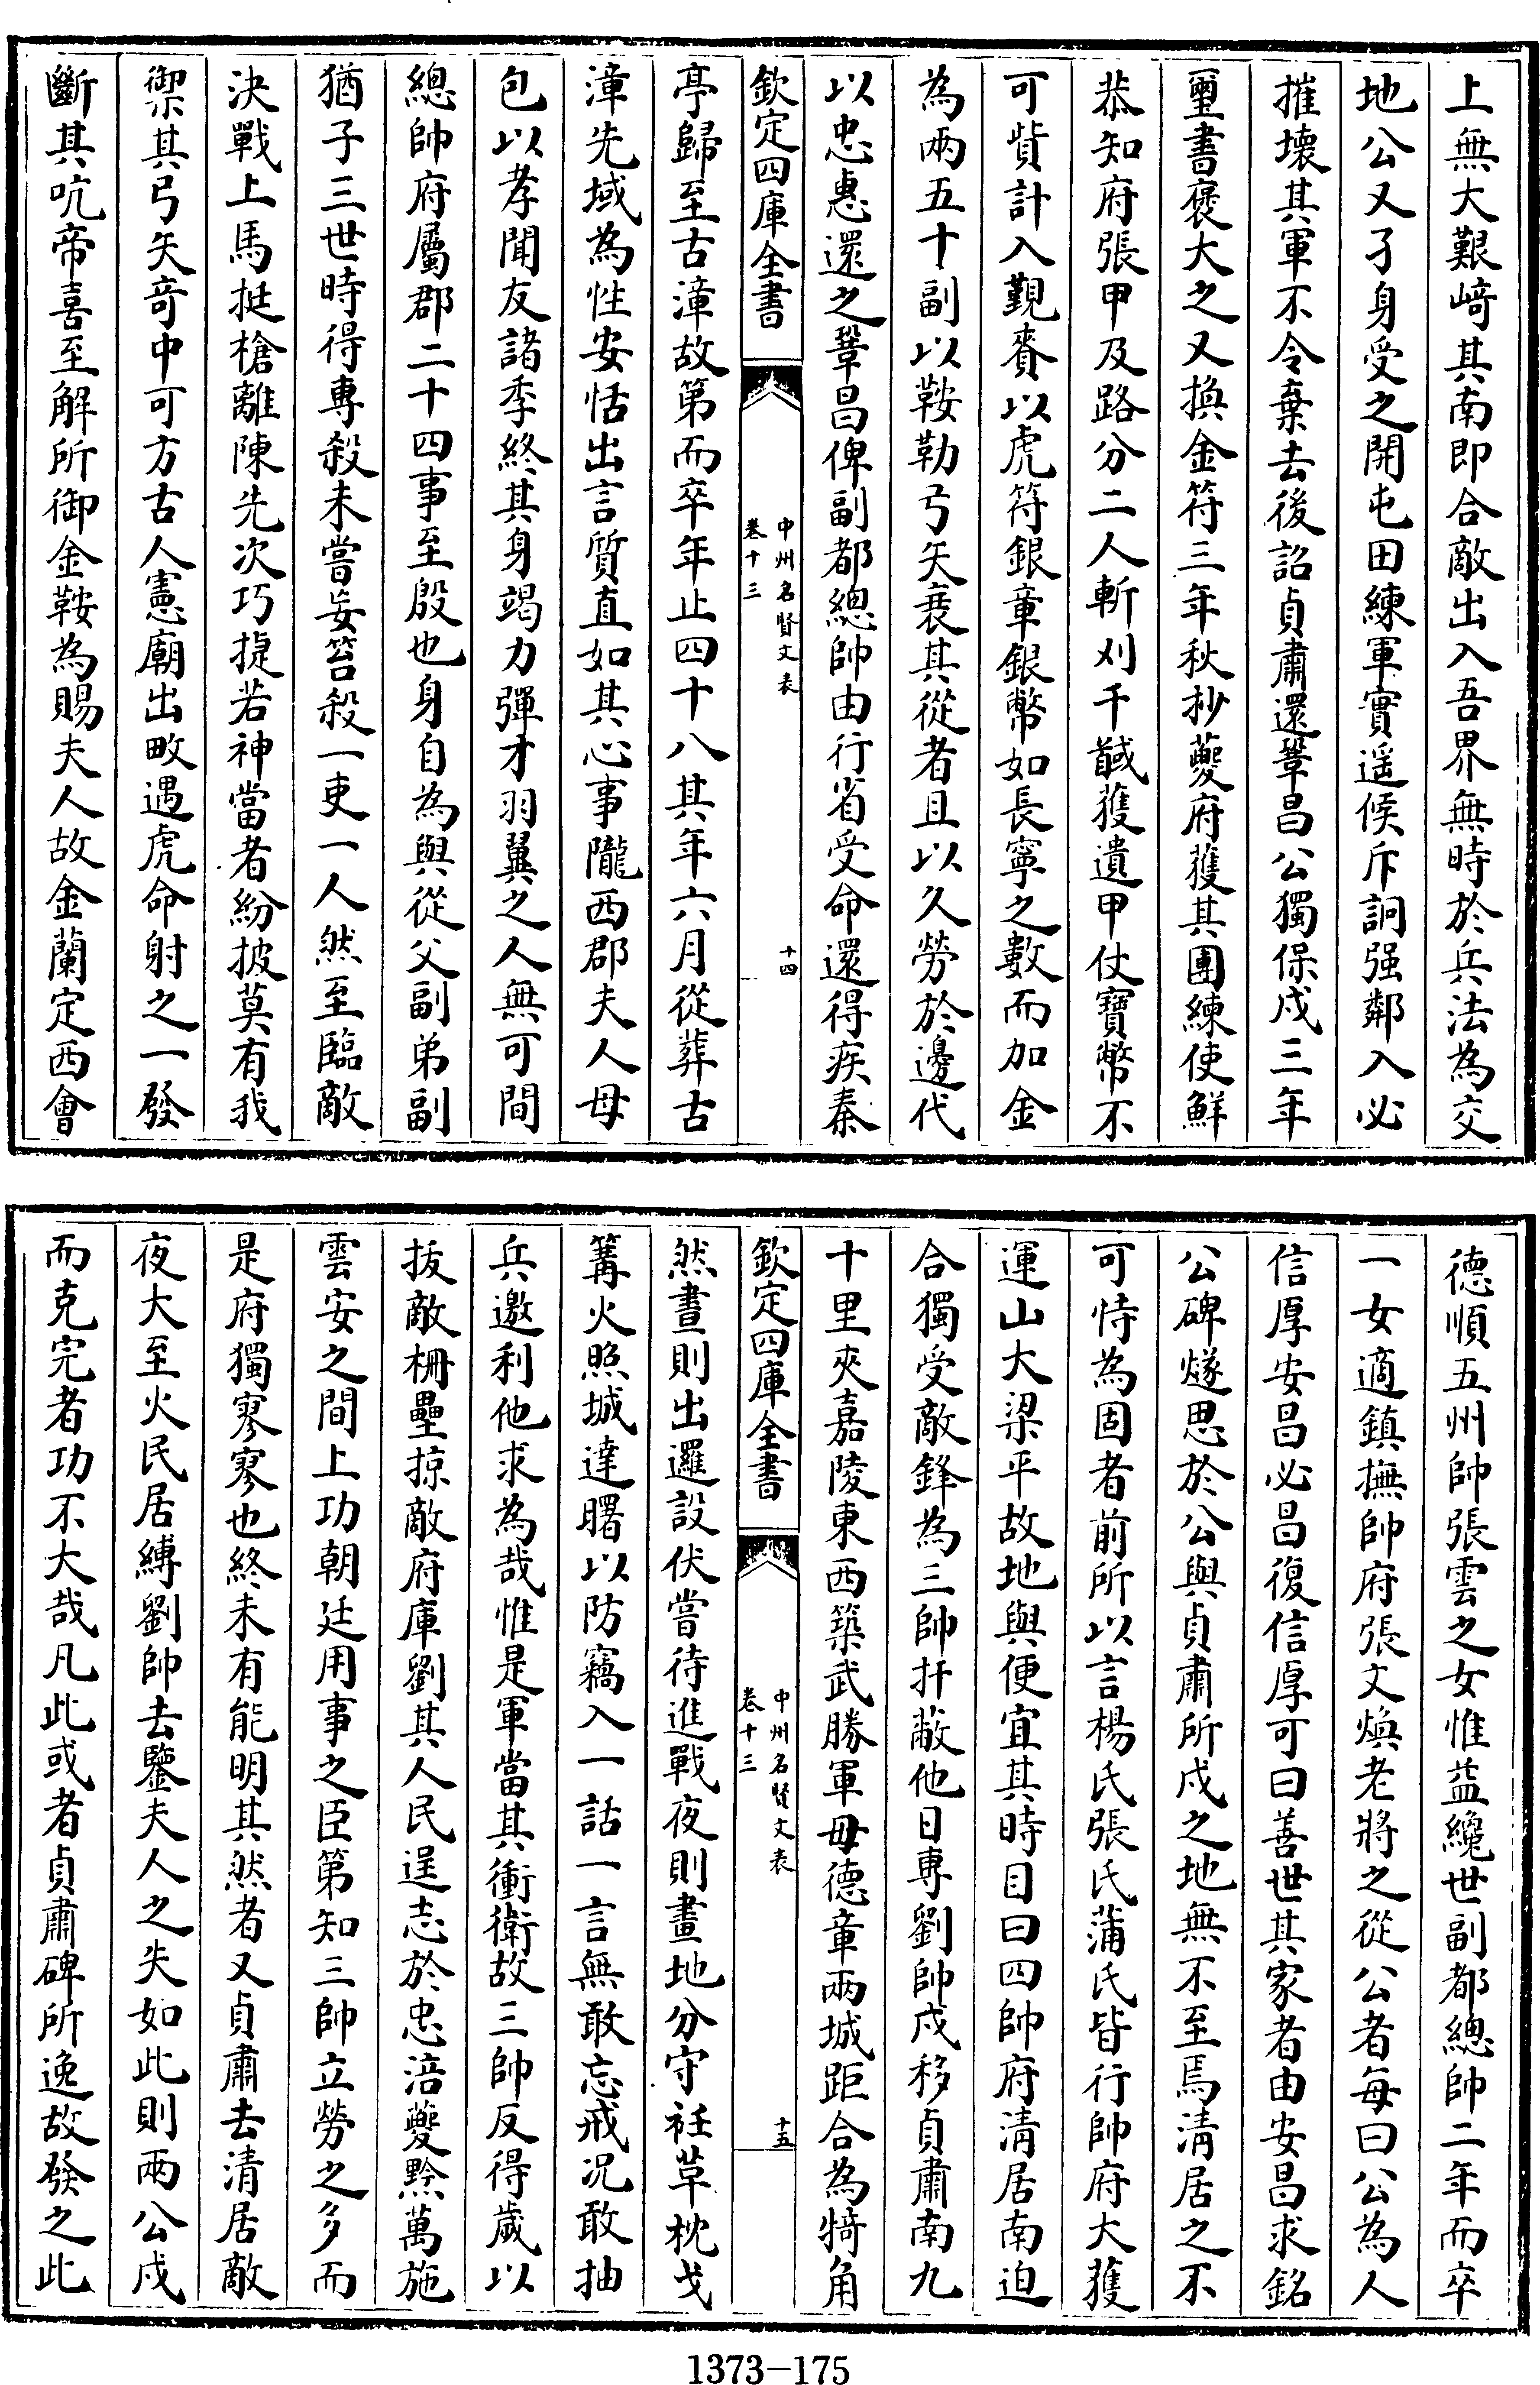 上無大艱﨑其南即合敵出入吾界無時於兵法為交
地公又孑身受之開屯田練軍實遥候斥詗强鄰入必
摧壞其軍不令棄去後詔貞肅還鞏昌公獨保戍三年
璽書褒大之又換金符三年秋抄夔府獲其團練使鮮
恭知府張甲及路分二人斬刈千馘獲遺甲仗寶幣不
可貲計入覲賚以虎符銀章銀幣如長寧之數而加金
為兩五十副以鞍勒弓矢衰其從者且以久勞於邊代
以忠惠還之鞏昌俾副都總帥由行省受命還得疾秦
欽定四庫全書
中州名賢文表
卷十三
十四
亭歸至古漳故第而卒年止四十八其年六月從葬古
漳先域為性安恬出言質直如其心事隴西郡夫人母
包以孝聞友諸季終其身竭力彈才羽翼之人無可間
總帥府屬郡二十四事至殷也身自為與從父副弟副
猶子三世時得專殺未嘗妄笞殺一吏一人然至臨敵
決戰上馬挺槍離陳先次巧捷若神當者紛披莫有我
禦其弓矢竒中可方古人憲廟出畋遇虎命射之一發
斷其吭帝喜至解所御金鞍為賜夫人故金蘭定西會
德順五州帥張雲之女惟益纔世副都總帥二年而卒
一女適鎮撫帥府張文煥老將之從公者每曰公為人
信厚安昌必昌復信厚可曰善世其家者由安昌求銘
公碑燧思於公與貞肅所戍之地無不至焉清居之不
可恃為固者前所以言楊氏張氏蒲氏皆行帥府大獲
運山大梁平故地與便宜其時目曰四帥府清居南迫
合獨受敵鋒為三帥扞蔽他日專劉帥戍移貞肅南九
十里夾嘉陵東西築武勝軍毋德章兩城距合為犄角
欽定四庫全書
中州名賢文表
卷十三
十五
然晝則出邏設伏嘗待進戰夜則畫地分守衽草枕戈
篝火照城達曙以防竊入一話一言無敢忘戒况敢抽
兵邀利他求為哉惟是軍當其衝衛故三帥反得歲以
拔敵柵壘掠敵府庫劉其人民逞志於忠涪夔黔萬施
雲安之間上功朝廷用事之臣第知三帥立勞之多而
是府獨寥寥也終未有能明其然者又貞肅去清居敵
夜大至火民居縛劉帥去鑒夫人之失如此則兩公戍
而克完者功不大哉凡此或者貞肅碑所逸故發之此
1373-175